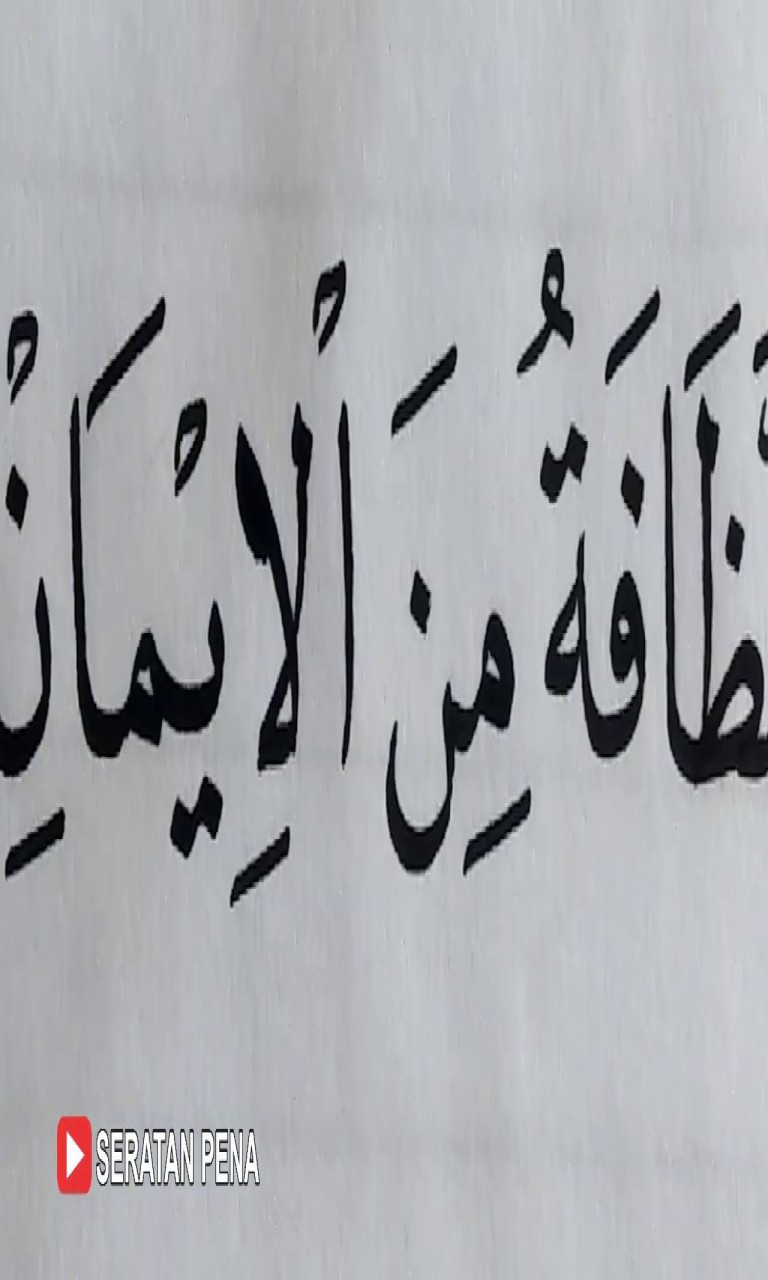 ظَافَةُ مِنَ الْاِيْمَانِ
SERATAN PENA